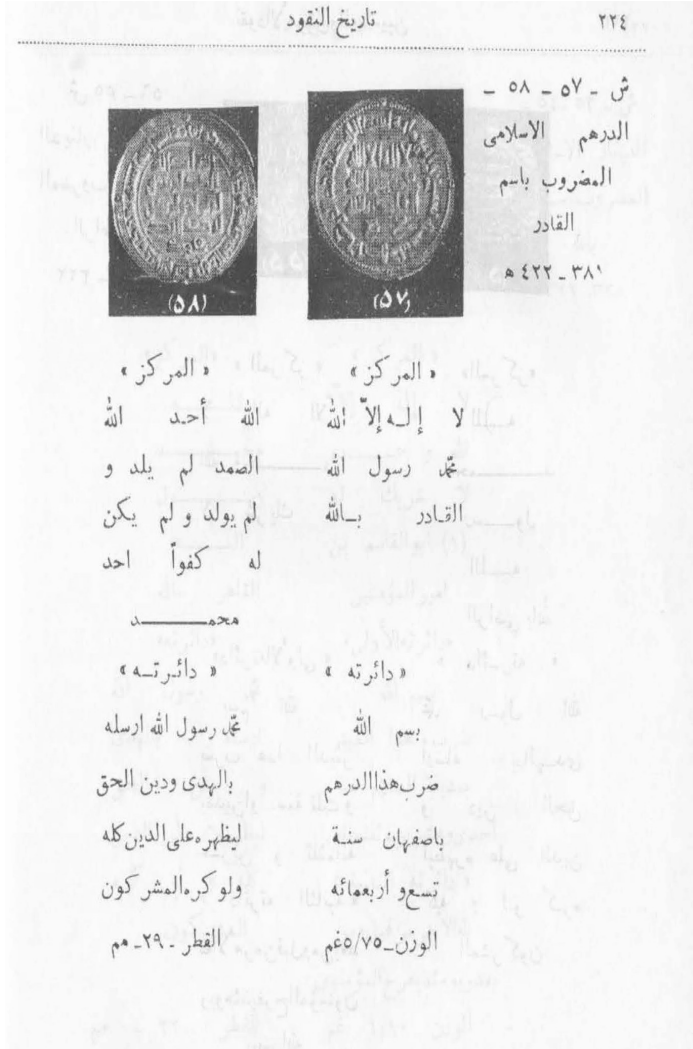 ٢٢٤ تاريخ النقود
ش ـ ٥٧ ـ ٥٨ ـ
الدرهم الاسلامى
المضروب باسم
القادر
٣٨١ ـ ٤٢٢ ه
(٥٧)
(٥٨)
« المركز »
لا إله إلاّ الله
محمّد رسول الله
القادر بالله
« المركز »
الله أحد الله
الصمد لم يلد و
لم يولد و لم يكن
له كفواً احد
محمد
« دائرته »
بسم الله
ضرب هذا الدرهم
باصفهان سنة
تسع و أربعمائه
الوزن ـ ٥/٧٥ غم
« دائرته »
محمّد رسول الله ارسله
بالهدى ودين الحق
ليظهره على الدين كله
ولو كره المشركون
القطر ـ ٢٩ ـ مم